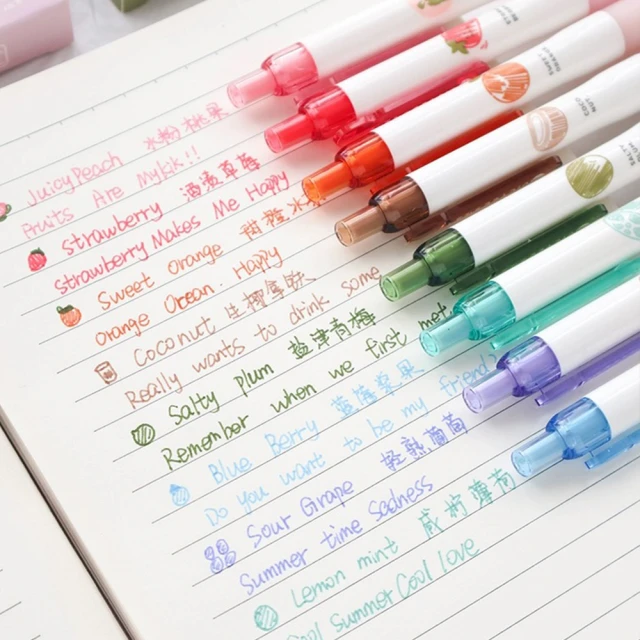 Juicy Peach 水粉桃果
Fruits Are Mylik!!
strawberry 酒渍草莓
strawberry Makes Me Happy
Sweet orange
orange Orean. Happy
Coconut 生椰厚
Really wants to drink some
Salty plum 盐津青梅
Remember when we first met
Blue Berry 蓝莓
Do you want to be my friend
Sour Grape 轻熟葡萄
Summer time Sadness
Lemon mint 咸柠薄荷
Cool Summer Cool love